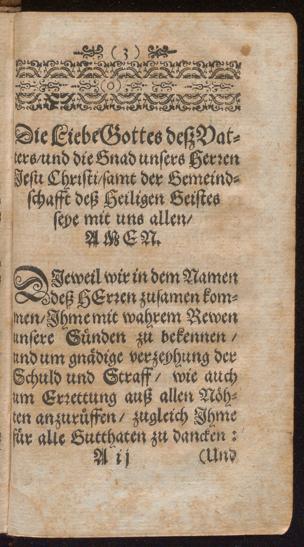 ( 3 )
Die Liebe Gottes deß Vat-
ters/und die Gnad unsers Herren
Jesu Christi/samt der Gemeind-
schafft deß Heiligen Geistes
seye mit uns allen/
AMEN.
DJeweil wir in dem Namen
deß HErren zusamen kom-
men/Jhme mit wahrem Rewen
unsere Sünden zu bekennen /
und um gnädige verzeyhung der
Schuld und Straff/ wie auch
um Errettung auß allen Nöh-
ten anzurüffen/ zugleich Jhme
für alle Gutthaten zu dancken :
A ij (Und